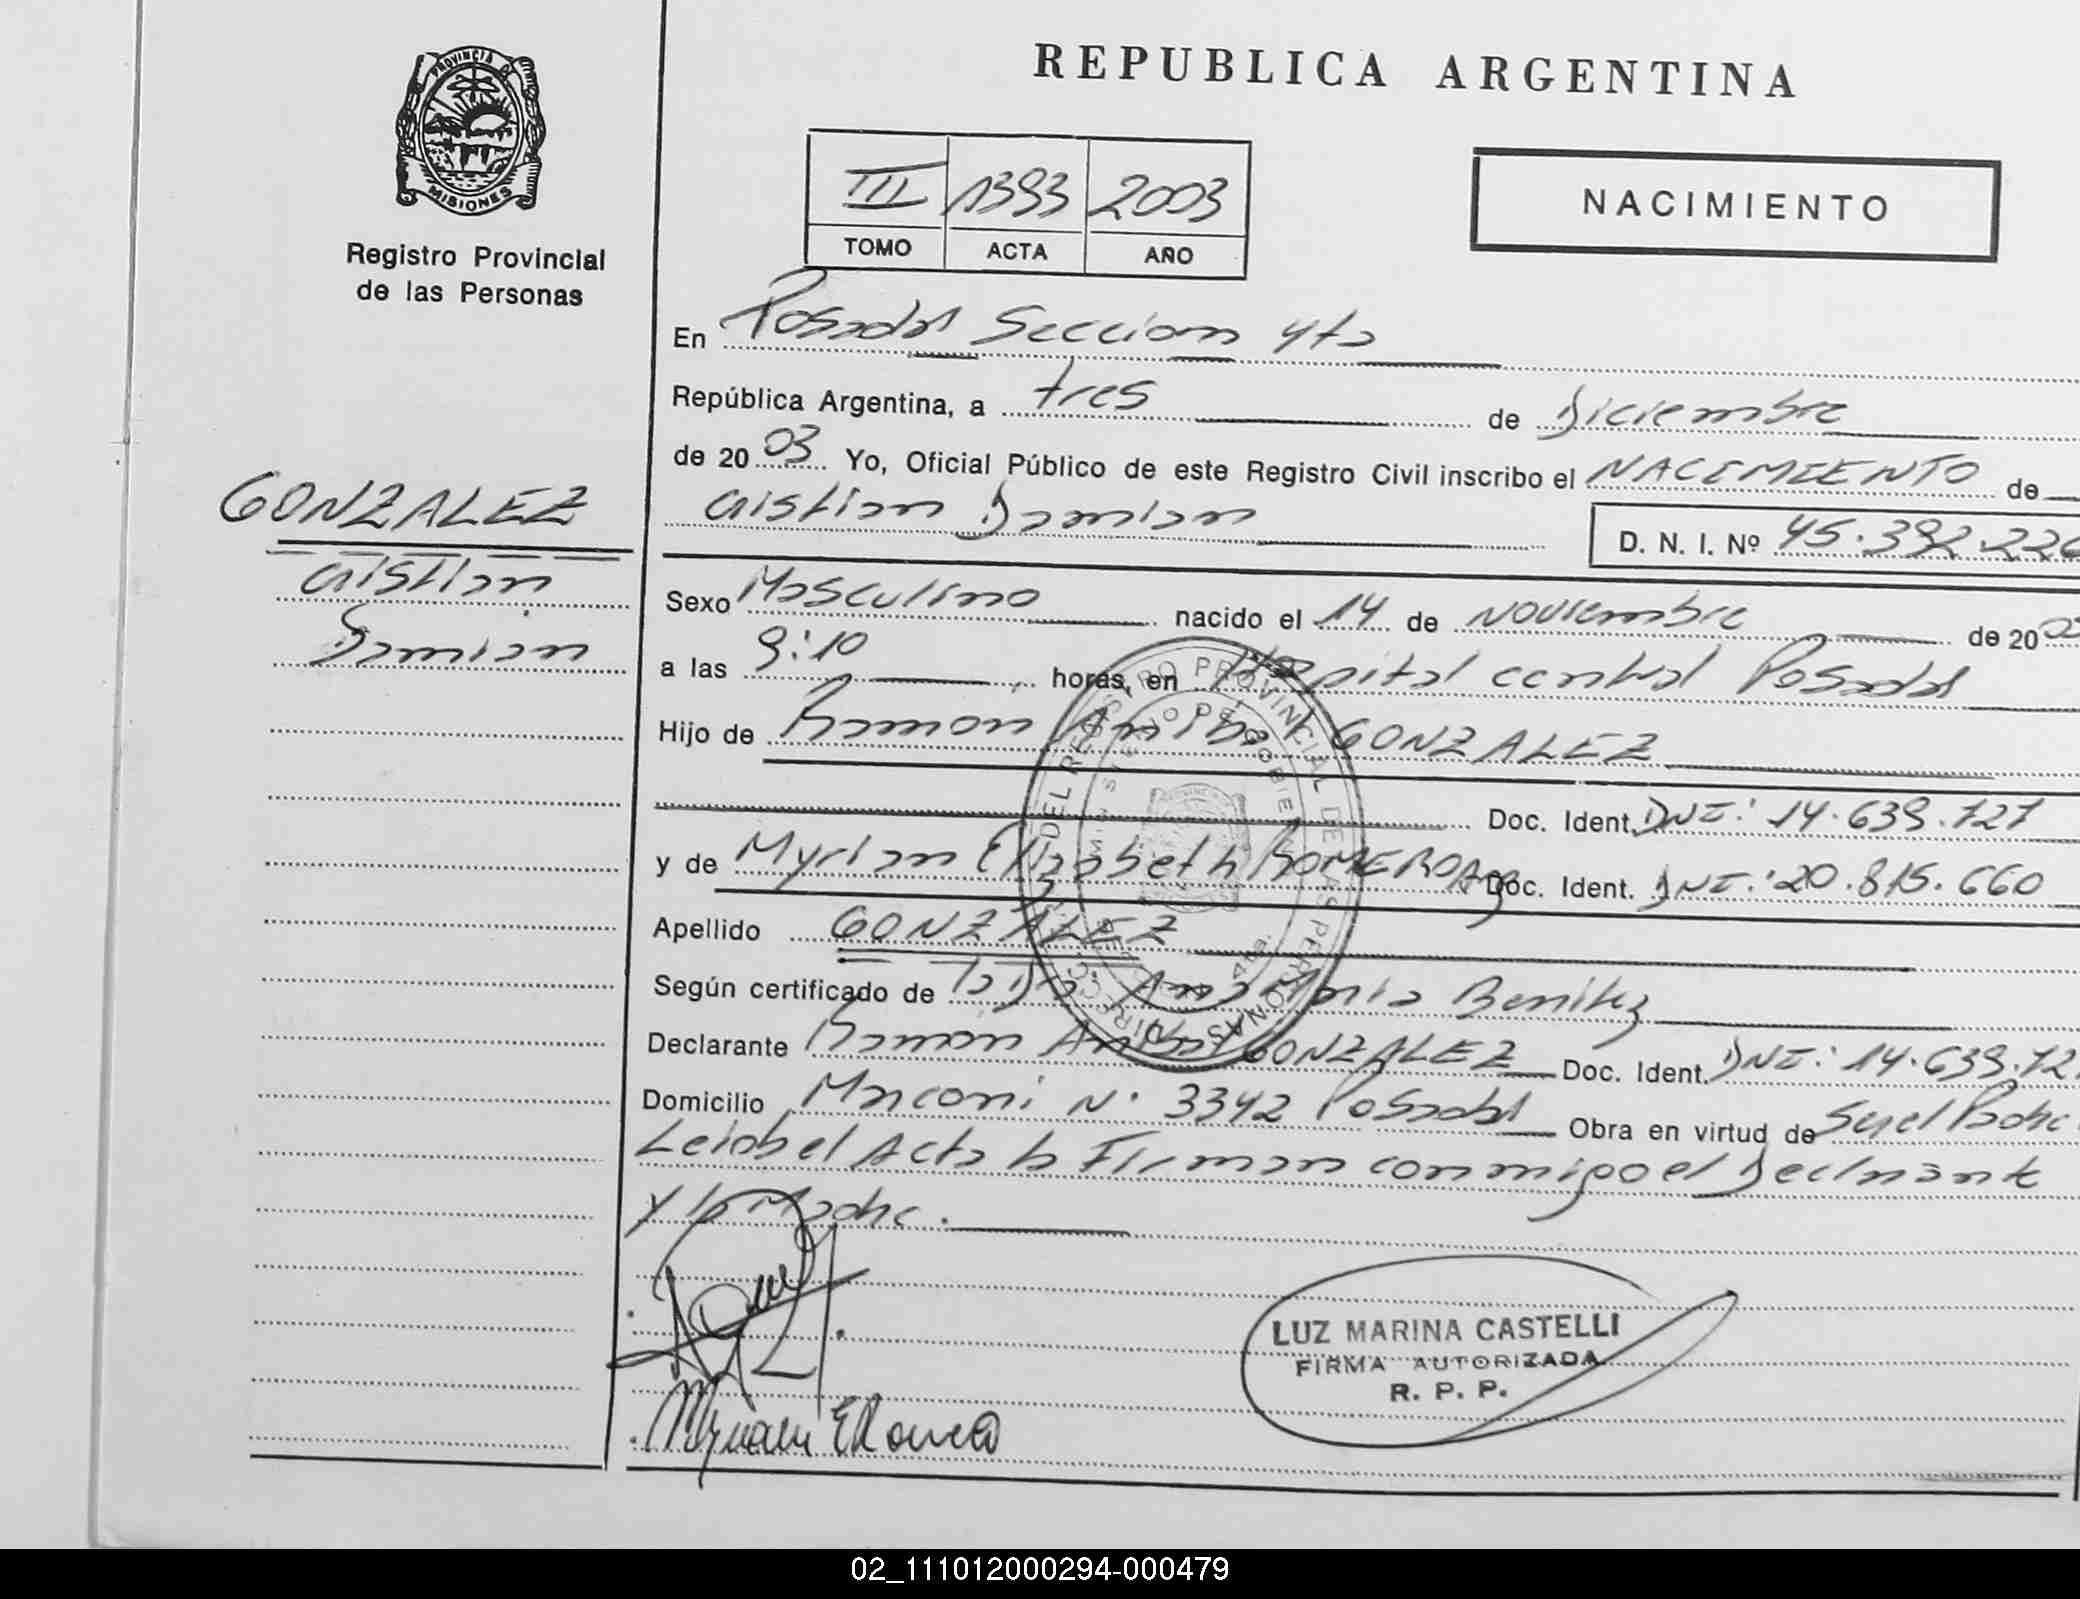 PROVINCIA DE
MISIONES
Registro Provincial
de las Personas
GONZALEZ
Cristian
Damian
REPUBLICA ARGENTINA
III 1393 2003
TOMO ACTA AÑO
NACIMIENTO
En Posadas Seccion 4ta
República Argentina, a tres de Diciembre
de 2003 Yo, Oficial Público de este Registro Civil inscribo el NACIMIENTO de
Cristian Damian D. N. I. Nº 45.392.22
Sexo Masculino nacido el 14 de Noviembre de 20
a las 9:10 horas, en Hospital central Posadas
Hijo de Ramon Anibal GONZALEZ
Doc. Ident. DNI: 14.639.727
y de Myrian Elizabeth ROMERO Doc. Ident. DNI: 20.815.660
Apellido GONZALEZ
Según certificado de la Dra Ana Maria Benitez
Declarante Ramon Anibal GONZALEZ Doc. Ident. DNI: 14.639.72
Domicilio Marconi N° 3342 Posadas Obra en virtud de Ser el Padre
Leida el Acta la Firman conmigo el Declarante
y la Madre.
LUZ MARINA CASTELLI
FIRMA AUTORIZADA
R. P. P.
02_111012000294-000479